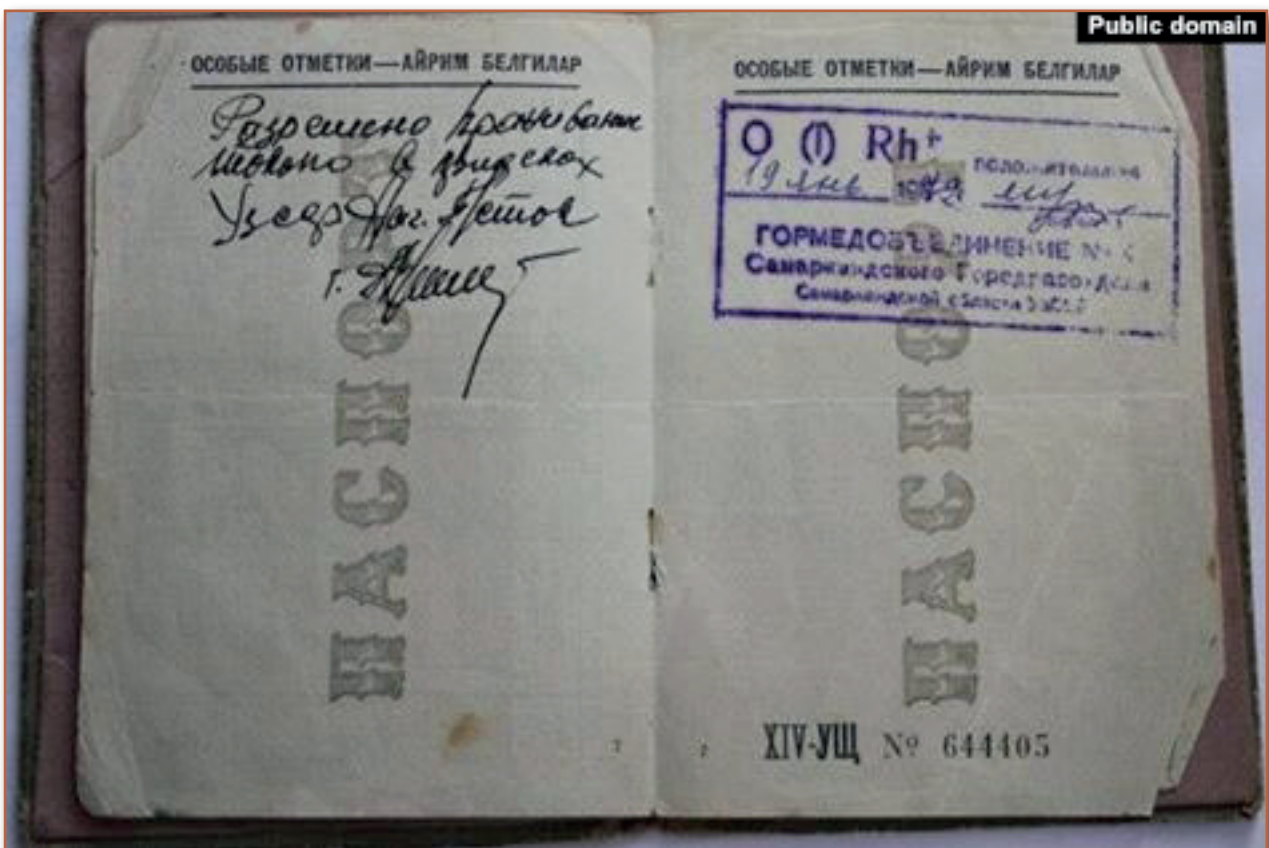 Public domain
ОСОБЫЕ ОТМЕТКИ—АЙРИМ БЕЛГИЛАР
Разрешено проживание
только в
Узсср Нач.
г.
ПАСПОРТ
7
ОСОБЫЕ ОТМЕТКИ—АЙРИМ БЕЛГИЛАР
O (I) Rh+
положительная
19 янв 19
ГОРМЕДОБЪЕДИНЕНИЕ №
Самаркандского Горздравотдела
Самаркандской области УзССР
ПАСПОРТ
XIV-УЩ № 644405